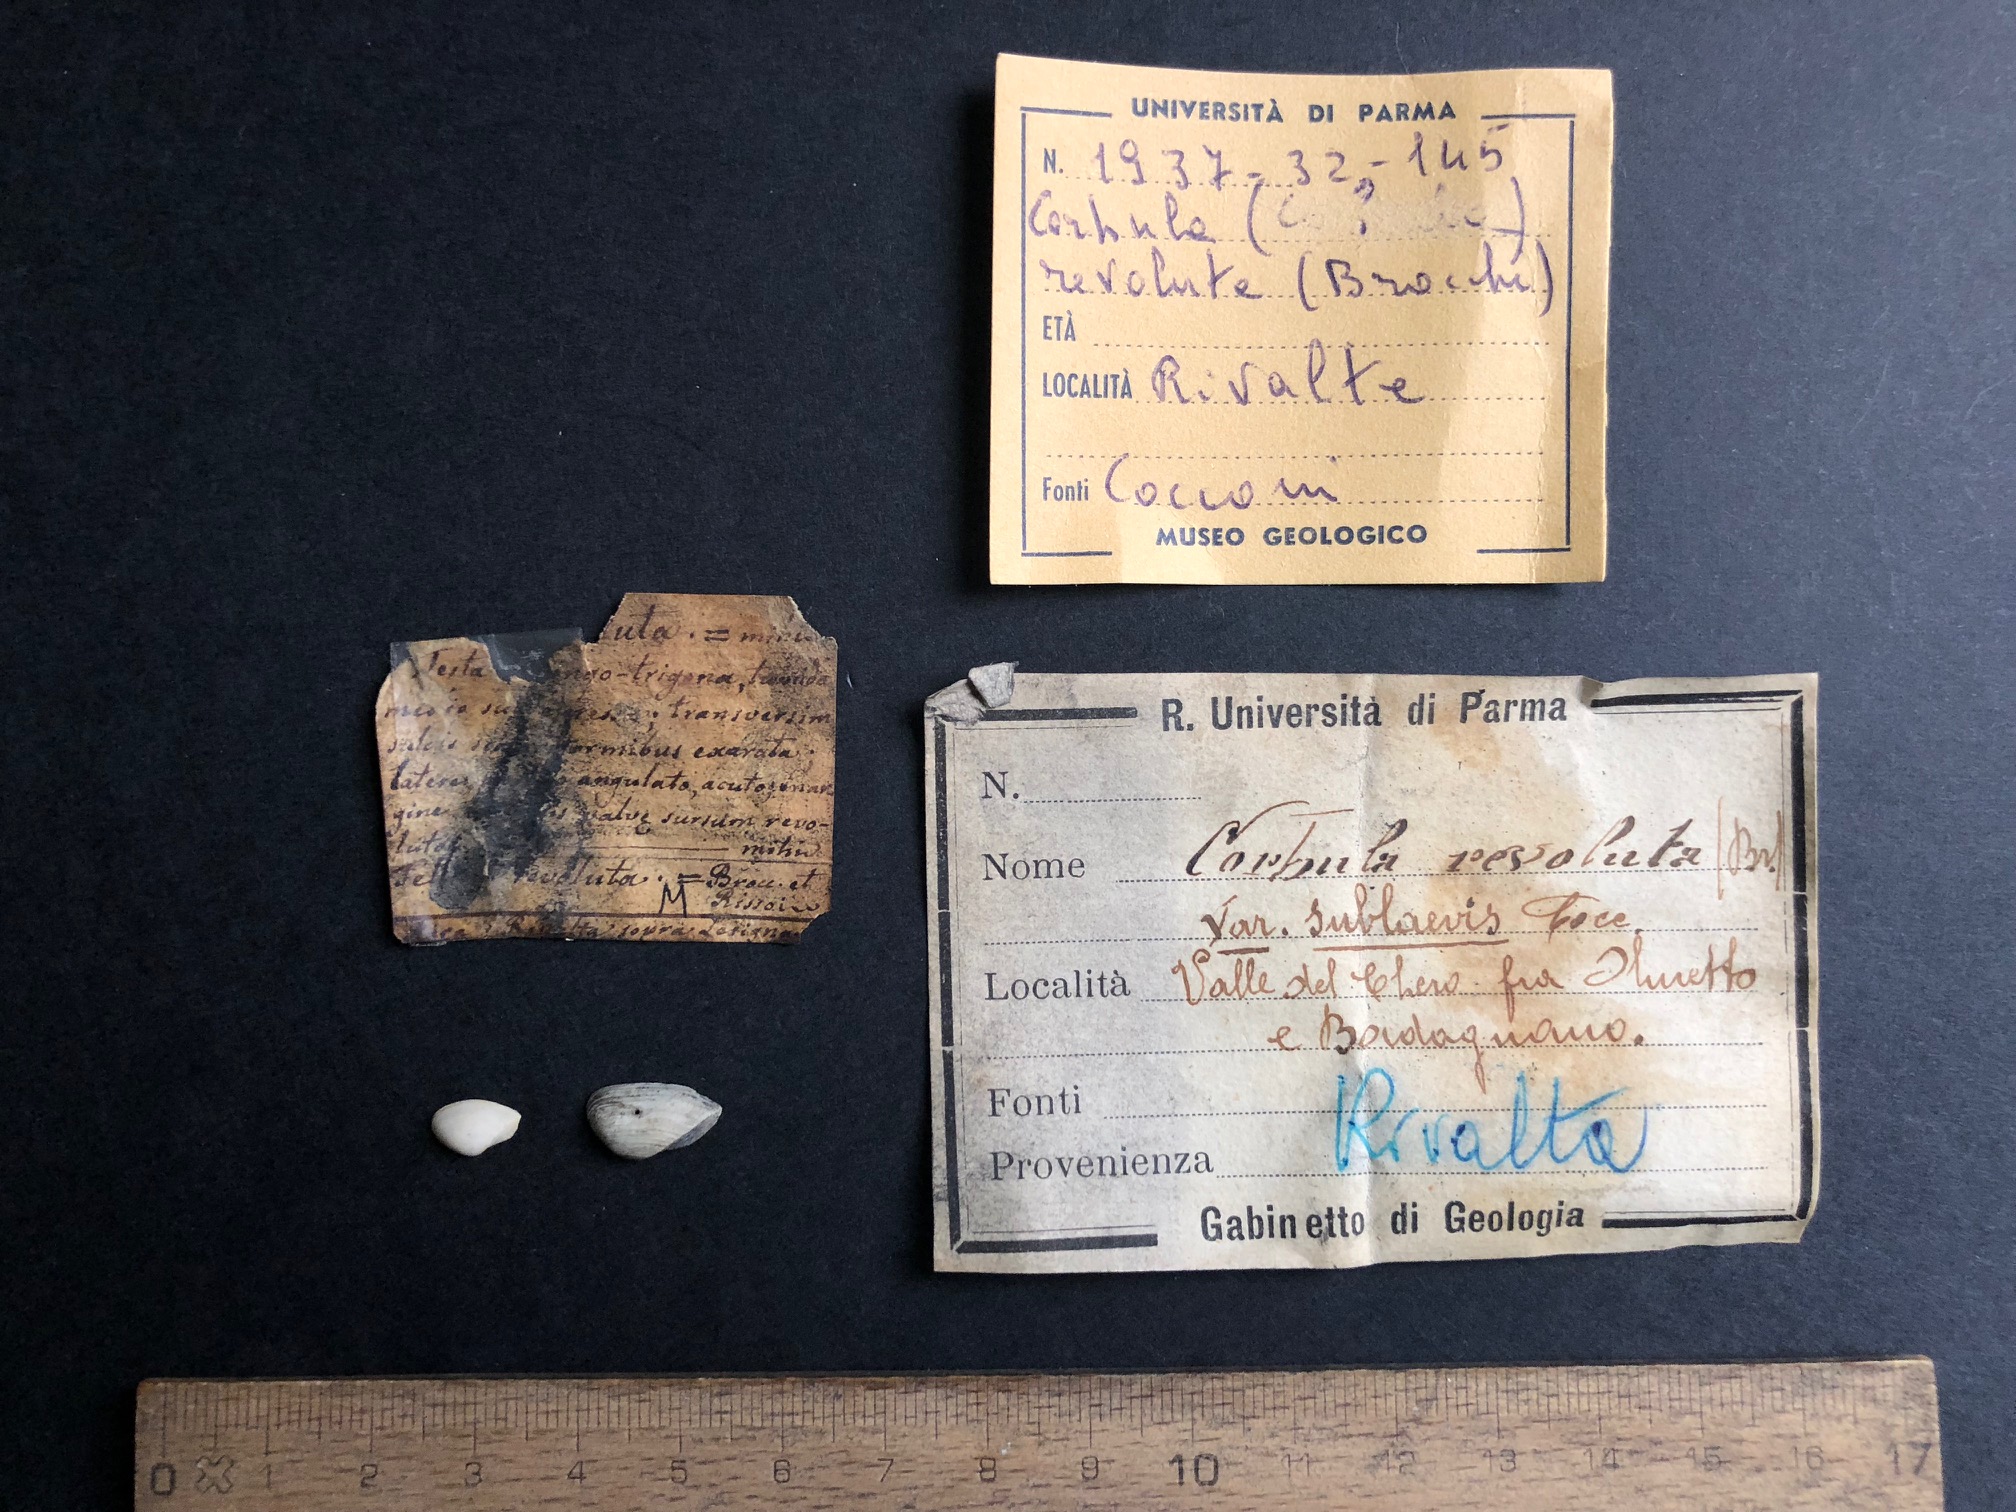 UNIVERSITÀ DI PARMA
N. 1937-32-145
Corbula (
revoluta (Brocchi)
ETÀ
LOCALITÀ Rivalta
Fonti Cocconi
MUSEO GEOLOGICO
uta . =
Testa ongo-trigona,
transversim
formibus exarata
angulato, acuto, mar
gine valve sursum revo-
luto
revoluta . = Brocc. et
M Rissoi
Rivalta sopra
R. Università di Parma
N.
Nome Corbula revoluta (Br.)
Var. sublaevis Cocc.
Località Valle del Chero fra Olmetto
e Badagnano.
Fonti
Provenienza Rivalta
Gabinetto di Geologia
0 1 2 3 4 5 6 7 8 9 10 11 12 13 14 15 16 17